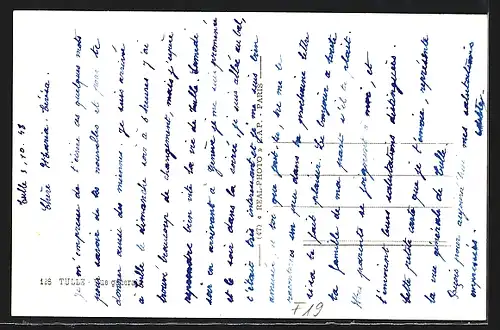 Tulle 3.10.43
Chère Maria-Luisa
je m'empresse de t'écrire ces quelques mots
pour savoir de tes nouvelles et pour te
donner aussi des miennes. je suis arrivé
à Tulle le dimanche soir à 8 heures j'ai
trouvé beaucoup de changement, mais j'espère
reprendre bien vite la vie de Tulle. Samedi
soir en arrivant à je me suis promené
et le soir dans la soirée, je suis allé au bal,
c'était très intéressant et je me suis bien
amusé, et toi que fait-tu, tu me le
raconteras un peu dans ta prochaine lettre
si cela te fait plaisir. Le bonjour à toute
ta famille de ma part s'il te plait.
Mes parents se joignent à moi, et
t'envoient leurs salutations distinguées.
Cette petite carte que je t'envoie, représente
la vue générale de Tulle.
Reçois pour aujourd'hui mes salutations
empressées.
118 TULLE - Vue générale
(47) REAL-PHOTO C.A.P. - PARIS
F19